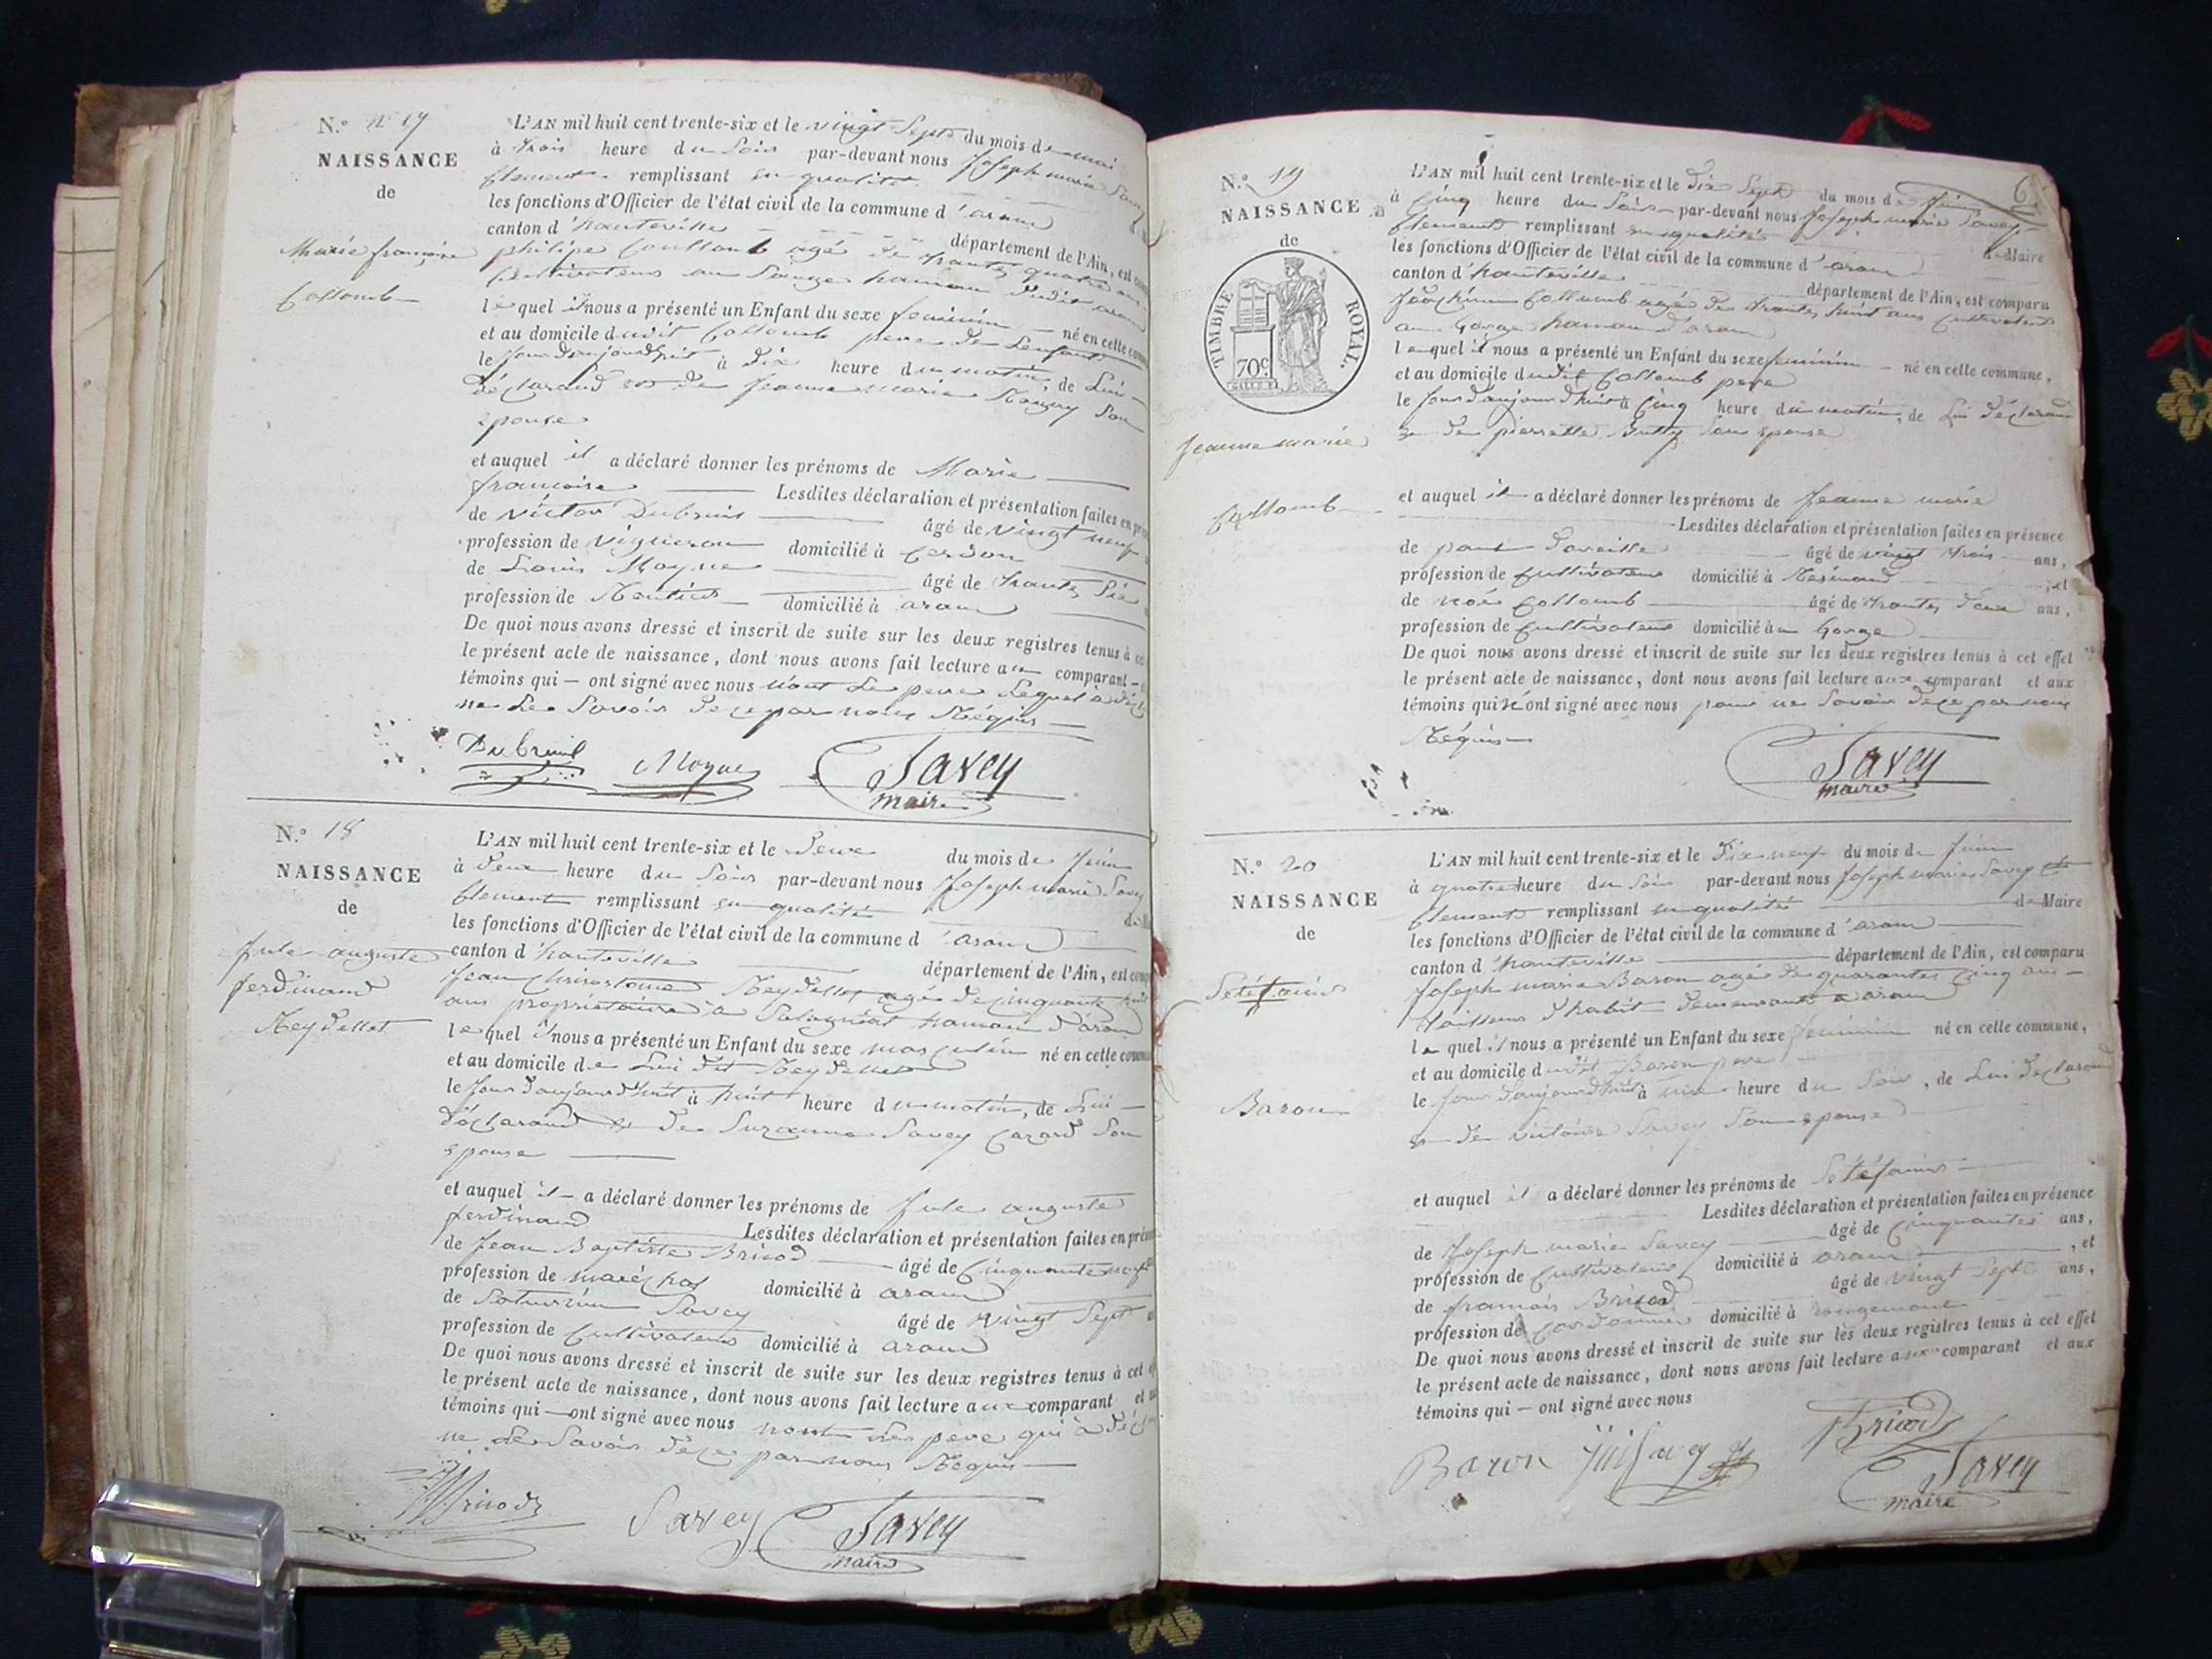 N.º 17
NAISSANCE
de
Marie françoise
Collomb
L'AN mil huit cent trente-six et le vingt Sept du mois de mai
à trois heure du Soir par-devant nous Joseph marie Savey
Clement remplissant en qualité
les fonctions d'Officier de l'état civil de la commune d'aran
canton d'hauteville département de l'Ain, est
philipe Coullomb agé de trante quatre ans
Cultivateur au hamau dudit aran
lequel il nous a présenté un Enfant du sexe feminin né en cette
et au domicile dudit Collomb pere de Lenfant
le jour daujourdhuit à dix heure du matin, de Lui
déclarand et de jeanne marie Son
epouse
et auquel il a déclaré donner les prénoms de Marie
francoise Lesdites déclaration et présentation faites en
de victor Dubreuis âgé de vingt neuf
profession de vigneron domicilié à Cerdon
de Louis Moyne âgé de trante Six
profession de domicilié à aran
De quoi nous avons dressé et inscrit de suite sur les deux registres tenus à
le présent acte de naissance, dont nous avons fait lecture au comparant
témoins qui – ont signé avec nous non le pere Lequel à
ne Le Savoir dece par nous Réquis
Dubreuil Moyne Savey
maire
N.º 18
NAISSANCE
de
jule auguste
ferdinand
Reydellet
L'AN mil huit cent trente-six et le deux du mois de juin
à deux heure du Soir par-devant nous Joseph marie Savey
Clement remplissant en qualité
les fonctions d'Officier de l'état civil de la commune d'aran
canton d'hauteville département de l'Ain, est
jean Chrisostome Reydellet agé de cinquante huit
ans propriétaire à hamau d'aran
lequel il nous a présenté un Enfant du sexe masculin né en cette
et au domicile de Lui dit Reydellet
le jour daujourdhuit à huit heure du matin, de Lui
déclarand et de Suzanne Savey Cazard Son
epouse
et auquel il – a déclaré donner les prénoms de jule auguste
ferdinand Lesdites déclaration et présentation faites en
de jean Baptiste Bricod âgé de cinquante neuf
profession de maréchal domicilié à aran
de Saturnin Savey âgé de vingt Sept
profession de Cultivateur domicilié à aran
De quoi nous avons dressé et inscrit de suite sur les deux registres tenus à cet
le présent acte de naissance, dont nous avons fait lecture aux comparant et
témoins qui – ont signé avec nous non le pere qui à
ne Le Savoir dece par nous Requis
Bricod Savey Savey
maire
6
N.º 19
NAISSANCE
de
TIMBRE ROYAL.
70c
Jeanne marie
Collomb
L'AN mil huit cent trente-six et le dix Sept du mois de juin
à cinq heure du Soir par-devant nous Joseph marie Savey
Clement remplissant en qualité de Maire
les fonctions d'Officier de l'état civil de la commune d'aran
canton d'hauteville département de l'Ain, est comparu
joachim Collomb agé de trante huit ans Cultivateur
au Gorge hamau d'aran
lequel il nous a présenté un Enfant du sexe feminin – né en cette commune,
et au domicile dudit Collomb pere
le jour daujourdhuit à cinq heure du matin, de Lui déclarand
et de pierrette Butty Son epouse
et auquel il a déclaré donner les prénoms de jeanne marie
Lesdites déclaration et présentation faites en présence
de paul âgé de vingt trois ans,
profession de Cultivateur domicilié à , et
de noé Collomb âgé de trante deux ans,
profession de Cultivateur domicilié au Gorge
De quoi nous avons dressé et inscrit de suite sur les deux registres tenus à cet effet
le présent acte de naissance, dont nous avons fait lecture aux comparant et aux
témoins qui n'ont signé avec nous pour ne Savoir dece par nous
Réquis
Savey
maire
N.º 20
NAISSANCE
de
Setéfanie
Baron
L'AN mil huit cent trente-six et le dix neuf du mois de juin
à quatre heure du Soir par-devant nous Joseph marie Savey
Clement remplissant en qualité de Maire
les fonctions d'Officier de l'état civil de la commune d'aran
canton d'hauteville département de l'Ain, est comparu
Joseph marie Baron agé de quarante cinq ans
tailleur d'habit demeurant à aran
lequel il nous a présenté un Enfant du sexe feminin né en cette commune,
et au domicile dudit Baron pere
le jour daujourdhuit à une heure du Soir, de Lui déclarand
et de victoire Savey Son epouse
et auquel il a déclaré donner les prénoms de Setéfanie
Lesdites déclaration et présentation faites en présence
de Joseph marie Savey âgé de cinquante ans,
profession de Cultivateur domicilié à aran , et
de francois Bricod âgé de vingt Sept ans,
profession de Cordonnier domicilié à rougemont
De quoi nous avons dressé et inscrit de suite sur les deux registres tenus à cet effet
le présent acte de naissance, dont nous avons fait lecture aux comparant et aux
témoins qui – ont signé avec nous
Baron Savey Bricod
Savey
maire